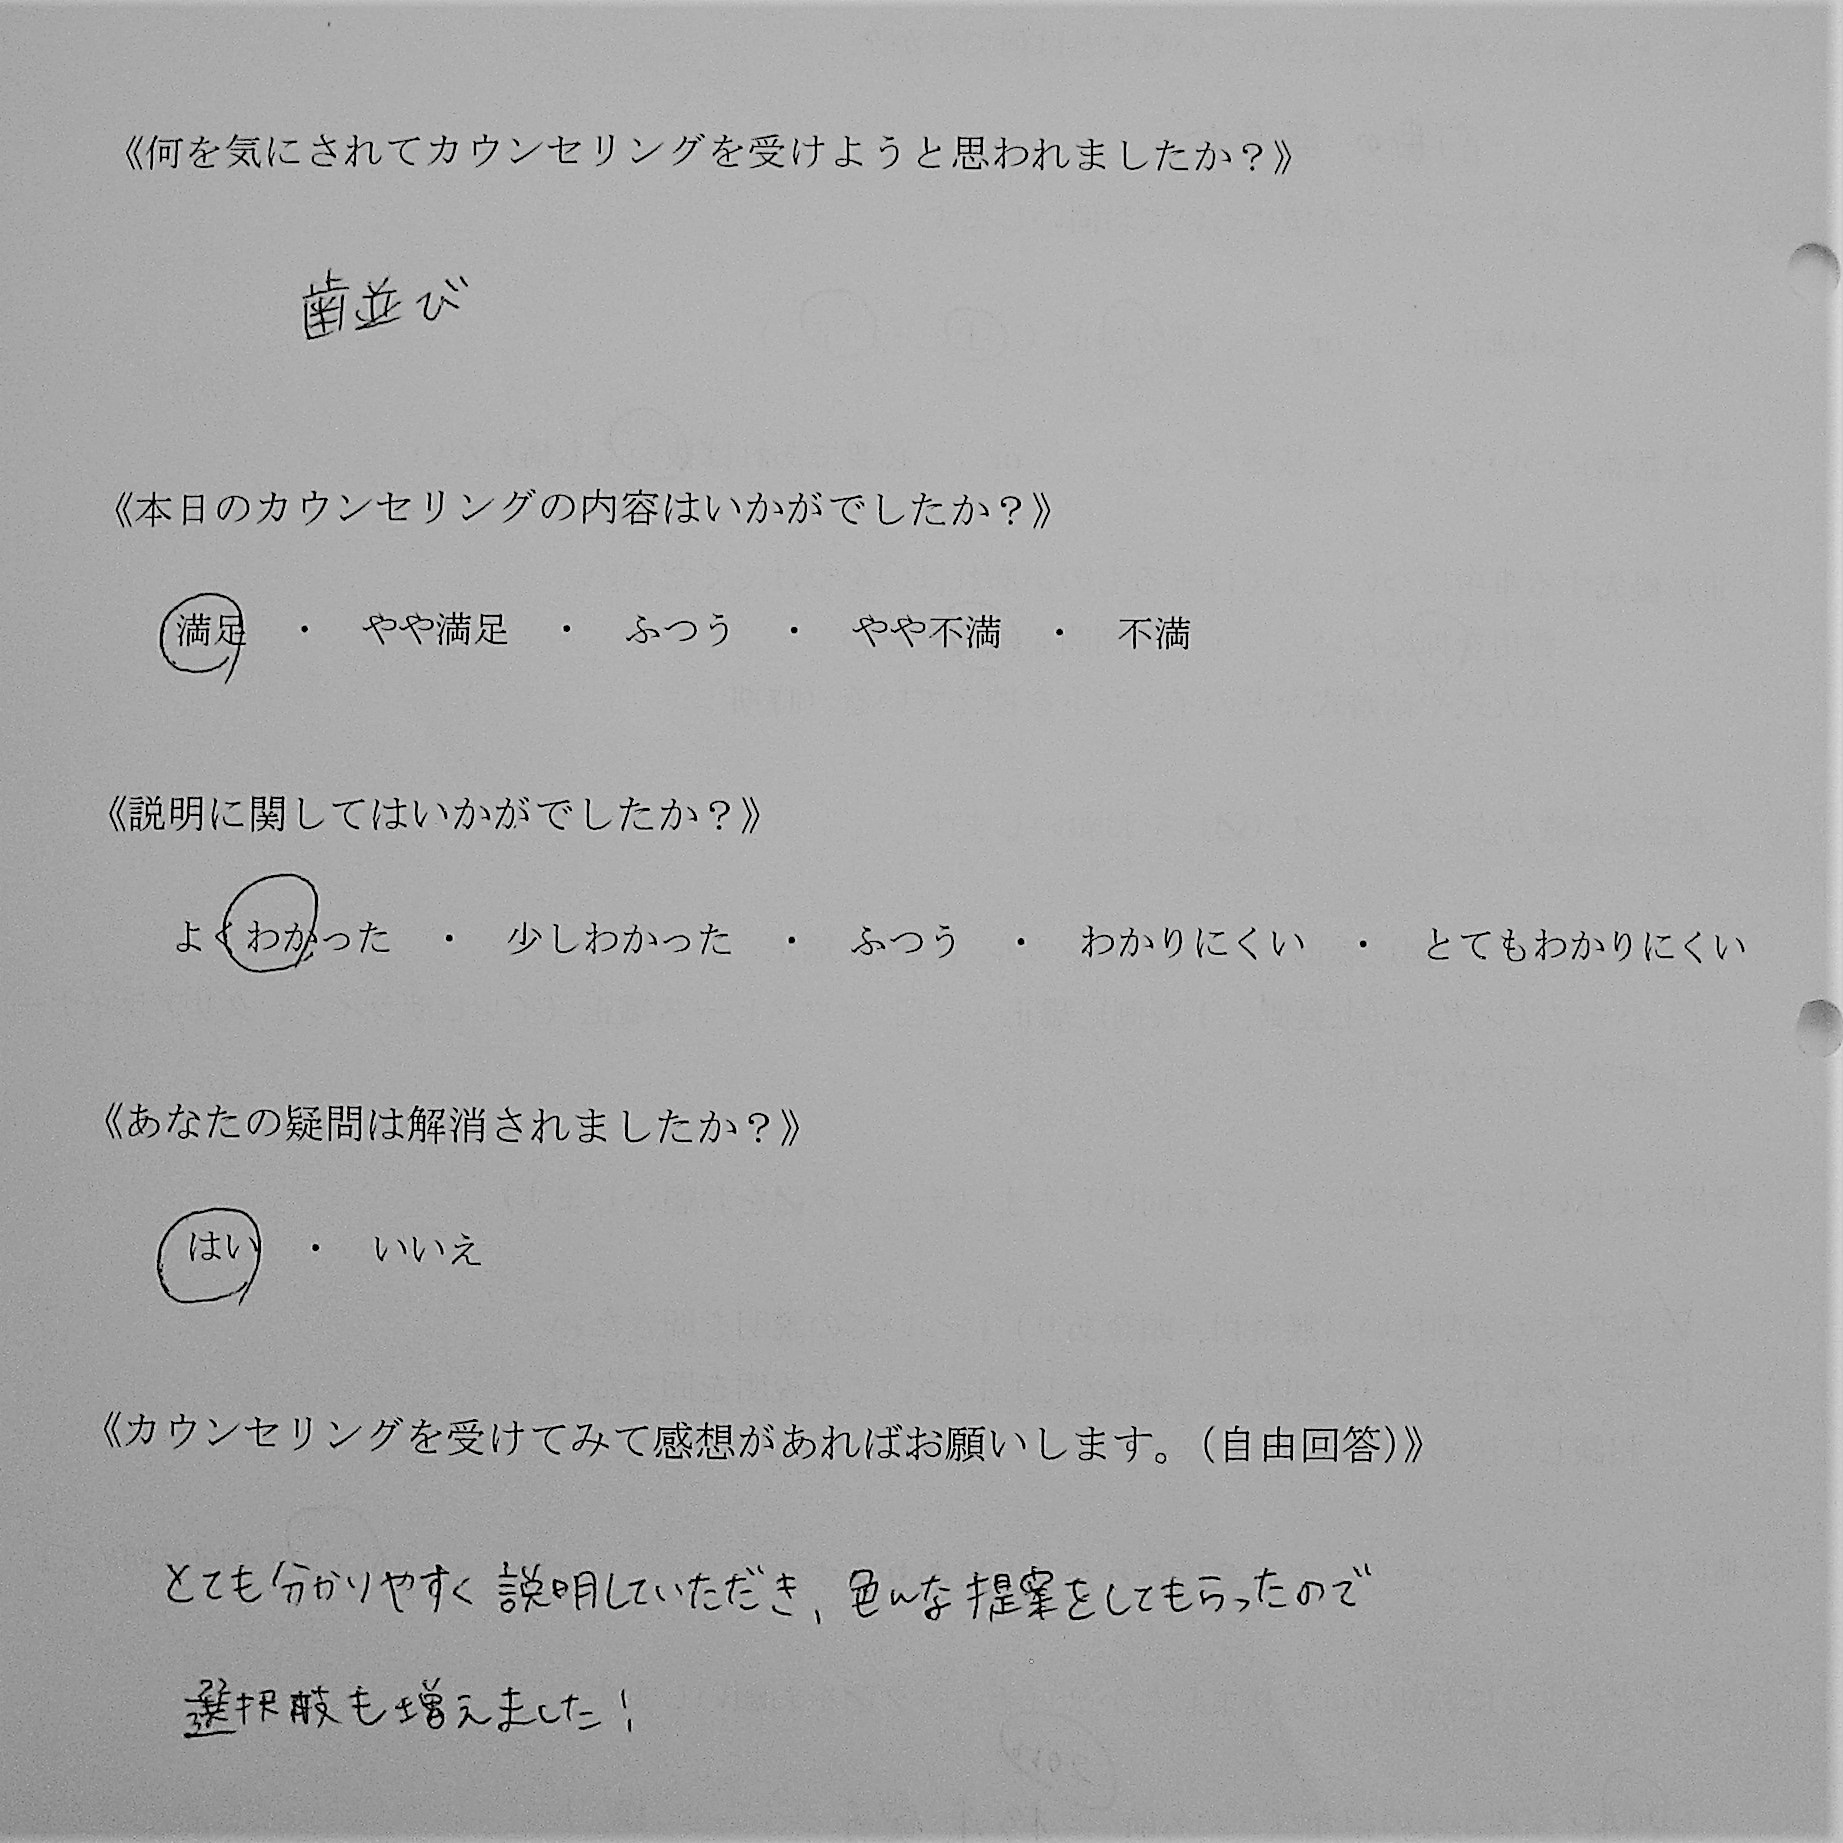 《何を気にされてカウンセリングを受けようと思われましたか？》
歯並び
《本日のカウンセリングの内容はいかがでしたか？》
満足　・　やや満足　・　ふつう　・　やや不満　・　不満
《説明に関してはいかがでしたか？》
よくわかった　・　少しわかった　・　ふつう　・　わかりにくい　・　とてもわかりにくい
《あなたの疑問は解消されましたか？》
はい　・　いいえ
《カウンセリングを受けてみて感想があればお願いします。（自由回答）》
とても分かりやすく説明していただき、色んな提案をしてもらったので
選択肢も増えました！